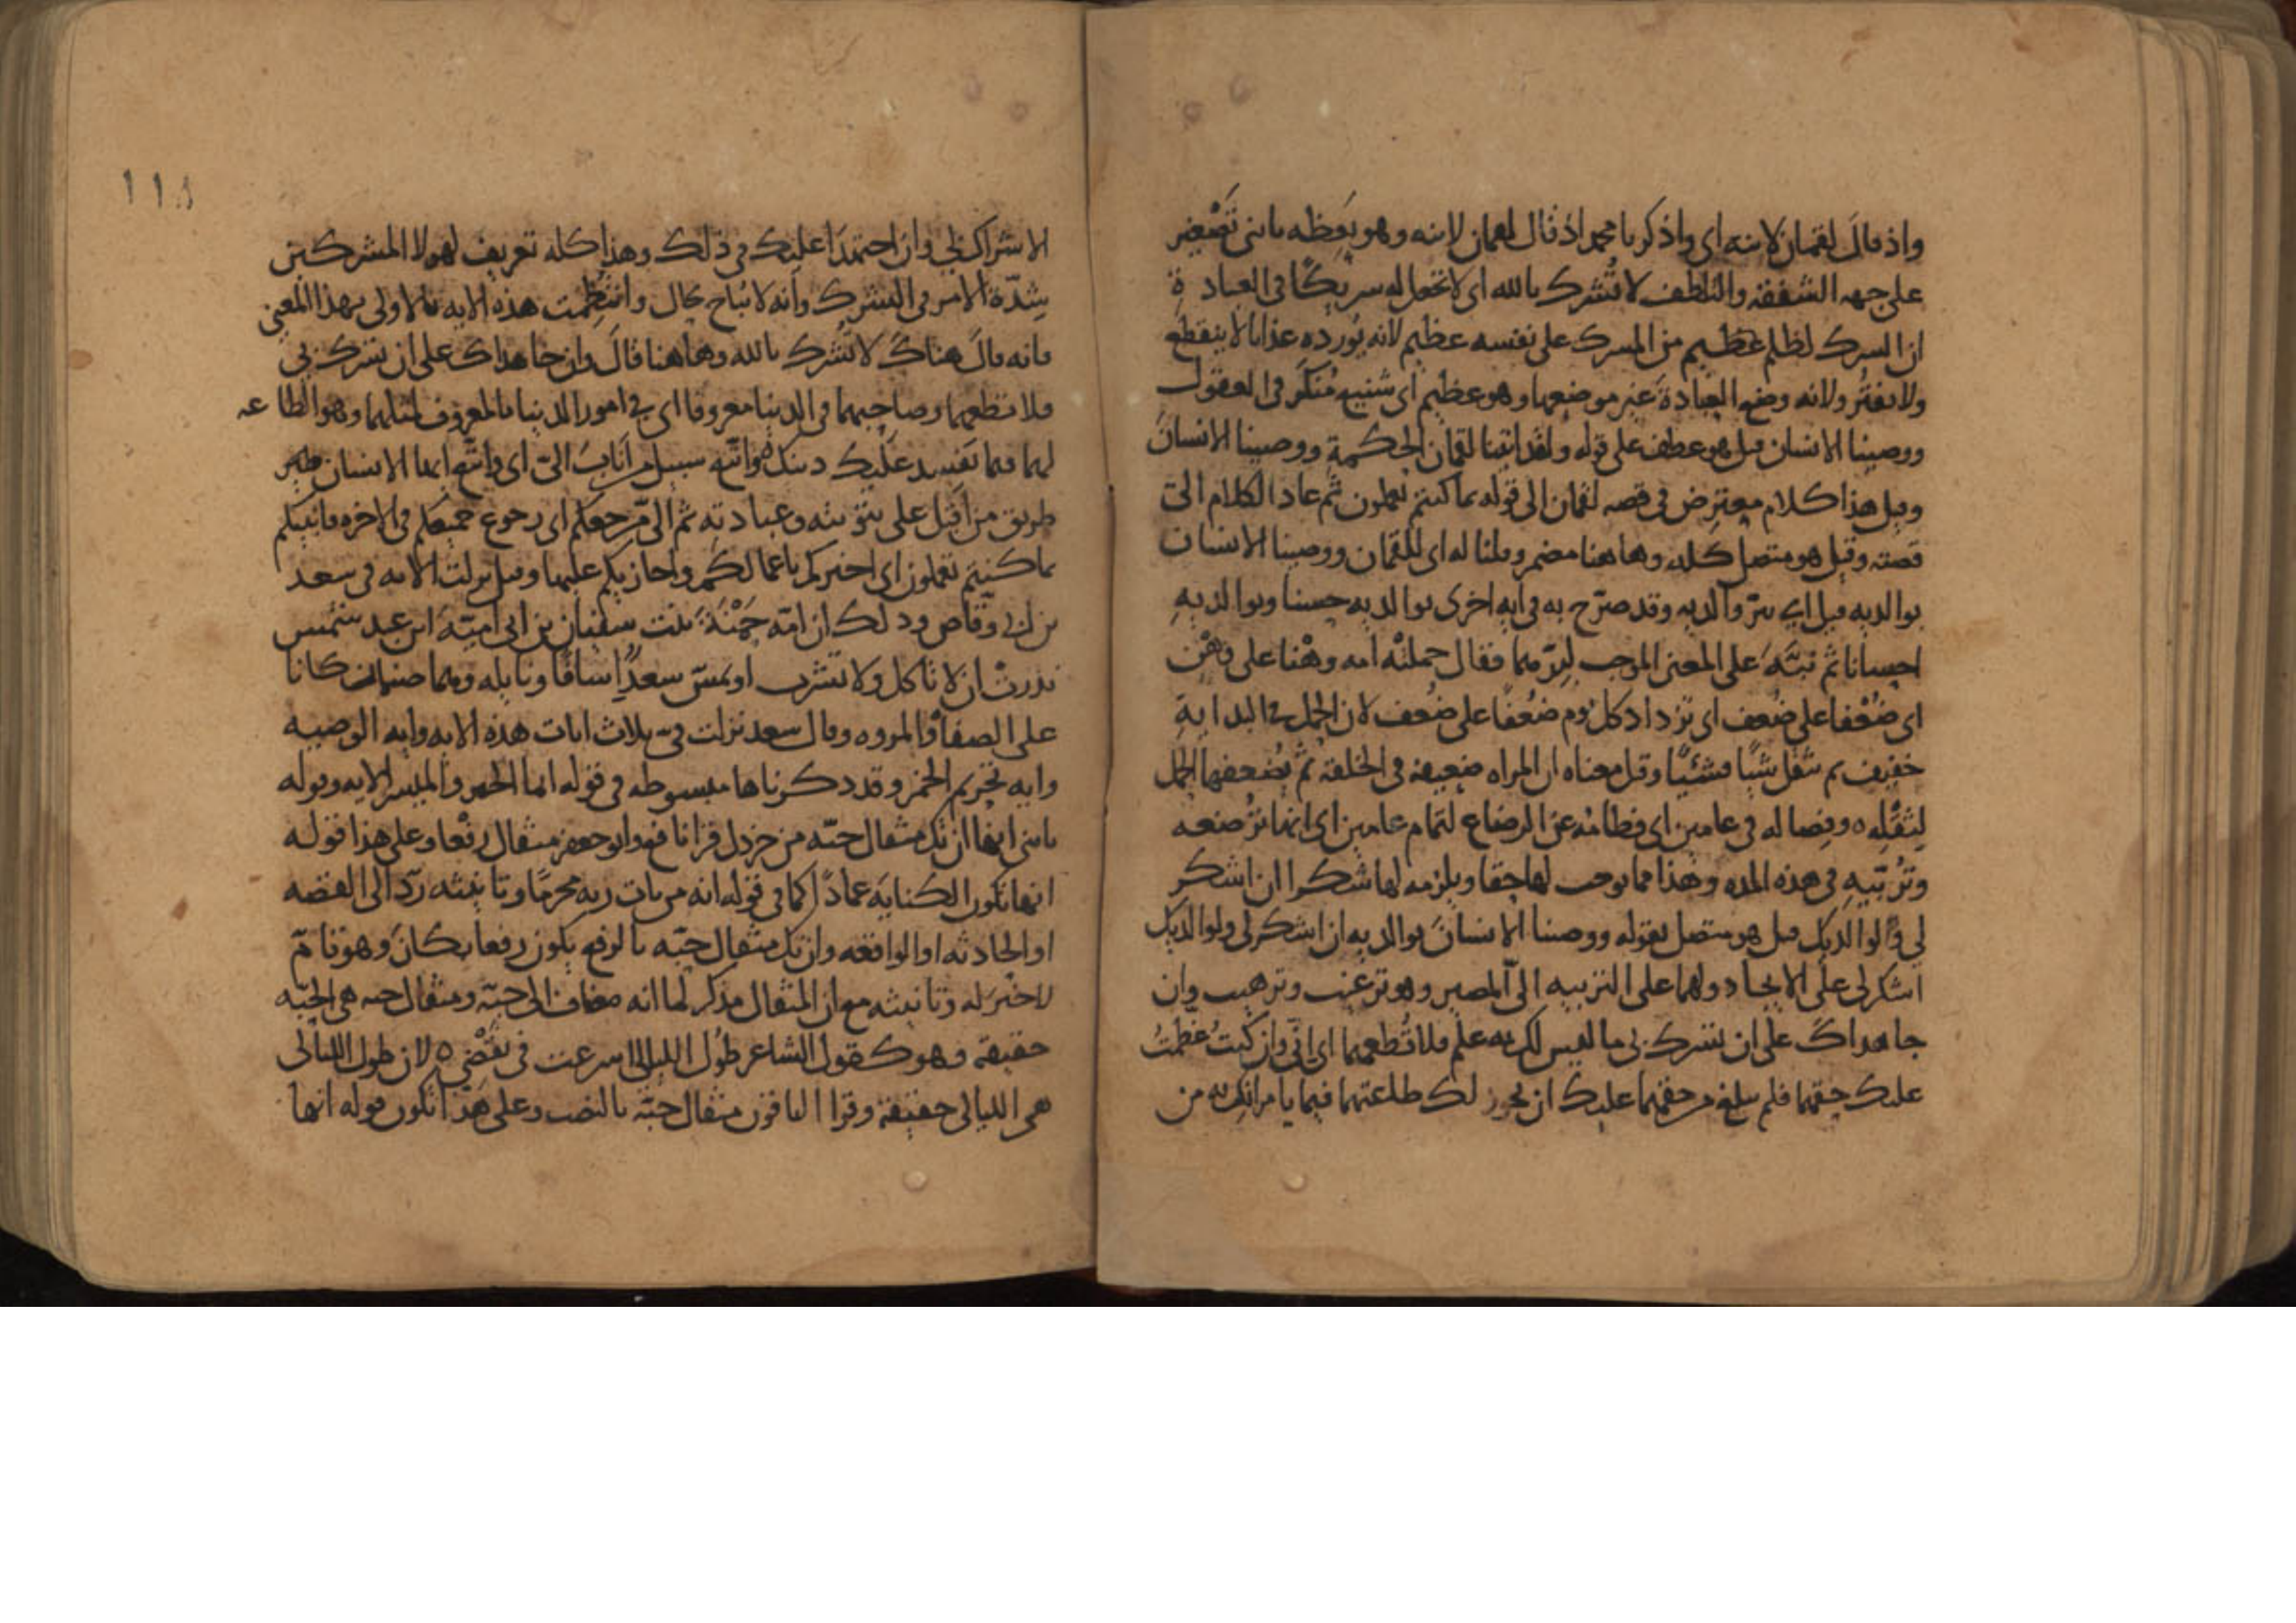 واذ قال لقمان لابنه اي واذكر يا محمد اذ قال لقمان لابنه وهو يعظه يا بنى تصغير
على جهه الشفقة والتلطف لا تشرك بالله اى لا تجعل له شريكا فى العبادة
ان الشرك لظلم عظيم من المشرك على نفسه عظيم لانه يورده عذابا لا ينقطع
ولا يفتر ولانه وضع العبادة غير موضعها وهو عظيم اى شنيع منكر فى العقول
ووصينا الانسان قيل هو عطف على قوله ولقد اتينا لقمان الحكمة ووصينا الانسان
وقيل هذا كلام معترض فى قصه لقمان الى قوله بما كنتم تعملون ثم عاد الكلام الى
قصته وقيل هو متصل كله وهاهنا مضمر وقلنا له اى للقمان ووصينا الانسان
بوالديه قيل اى ببر والديه وقد صرح به فى ايه اخرى بوالديه حسنا وبوالديه
احسانا ثم نبه على المعنى الموجب لبرهما فقال حملته امه وهنا على وهن
اى ضعفا على ضعف اى تزداد كل يوم ضعفا على ضعف لان الحمل فى البداية
خفيف ثم يثقل شيا فشيئا وقيل معناه ان المراه ضعيفه فى الخلقة ثم يضعفها الحمل
لثقله ه وفصاله في عامين اى فطامه عن الرضاع لتمام عامين اى انها ترضعه
وتربيه فى هذه المده وهذا مما يوجب لها حقا ويلزمه لها شكرا ان اشكر
لي ولوالديك قيل هو متصل بقوله ووصينا الانسان بوالديه ان اشكر لى ولوالديك
اشكر لى على الايجاد ولهما على التربيه الىّ المصير وهو ترغيب وترهيب وان
جاهداك على ان تشرك بى ما ليس لك به علم فلا تطعهما اى انى وان كنت عظمت
عليك حقهما فلم يبلغ من حقهما عليك ان يجوز لك طاعتهما فيما يامرانك به من
١١٨
الاشراك بي وان اجتهدا عليك فى ذلك وهذا كله تعريف لهولا المشركين
بشدة الامر فى الشرك وانه لا يباح بحال وانتظمت هذه الايه بالاولى بهذا المعنى
فانه قال هناك لا تشرك بالله وهاهنا قال وان جاهداك على ان تشرك بى
فلا تطعهما وصاحبهما فى الدنيا معروفا اى فى امور الدنيا بالمعروف لمثلهما وهو الطاعه
لهما فيما تفسد عليك دينك ه واتبع سبيل من اناب الىّ اى واتبع ايها الانسان
طريق من اقبل على بتوبته وعبادته ثم الىّ مرجعكم اى رجوع جميعكم فى الاخره فانبيكم
بما كنتم تعملون اى اخبركم باعمالكم واجازيكم عليها وقيل نزلت الايه فى سعد
بن ابي وقاص وذلك ان امه حمنة بنت سفيان بن ابى امية ابن عبد شمس
نذرت ان لا تاكل ولا تشرب او يمس سعدا اسافا ونايله وهما صنمان كانا
على الصفا والمروه وقال سعد نزلت فى ثلاث ايات هذه الايه وايه الوصيه
وايه تحريم الخمر وقد ذكرناها مبسوطه فى قوله انما الخمر والميسر الايه وقوله
يا بنى انها ان تك مثقال حبه من خردل قرا نافع وابو جعفر مثقال رفعا وعلى هذا قوله
انها تكون الكنايه عمادا كما فى قوله انه من يات ربه مجرما وتانيثه ردا الى القصه
او الحادثه او الواقعه وان تك مثقال حبه بالرفع يكون رفعا بكان وهو تام
لا خبر له وتانيثه مع ان المثقال مذكر لما انه مضاف الى حبة ومثقال حبه هى الحبه
حقيقة وهو كقول الشاعر طول الليالى اسرعت فى نقضى ه لان طول الليالى
هى الليالى حقيقة وقرا الباقون مثقال حبة بالنصب وعلى هذا تكون قوله انها